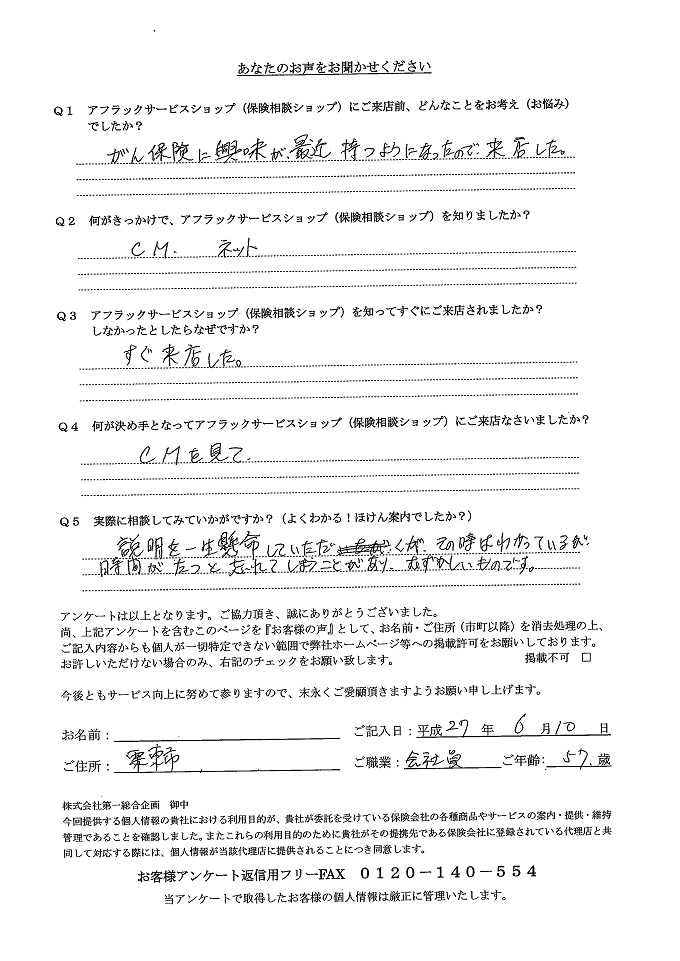 あなたのお声をお聞かせください
Q1 アフラックサービスショップ（保険相談ショップ）にご来店前、どんなことをお考え（お悩み）
でしたか？
がん保険に興味が、最近 持つようになったので 来店した。
Q2 何がきっかけで、アフラックサービスショップ（保険相談ショップ）を知りましたか？
CM. ネット
Q3 アフラックサービスショップ（保険相談ショップ）を知ってすぐにご来店されましたか？
しなかったとしたらなぜですか？
すぐ来店した。
Q4 何が決め手となってアフラックサービスショップ（保険相談ショップ）にご来店なさいましたか？
CMを見て.
Q5 実際に相談してみていかがですか？（よくわかる！ほけん案内でしたか？）
説明を一生懸命していただくが、その時はわかっているが
時間がたつと忘れてしまうことがあり、むずかしいものです。
アンケートは以上となります。ご協力頂き、誠にありがとうございました。
尚、上記アンケートを含むこのページを『お客様の声』として、お名前・ご住所（市町以降）を消去処理の上、
ご記入内容からも個人が一切特定できない範囲で弊社ホームページ等への掲載許可をお願いしております。
お許しいただけない場合のみ、右記のチェックをお願い致します。 掲載不可 □
今後ともサービス向上に努めて参りますので、末永くご愛顧頂きますようお願い申し上げます。
お名前： ご記入日：平成27年 6月10日
ご住所：栗東市 ご職業：会社員 ご年齢：57.歳
株式会社第一総合企画 御中
今回提供する個人情報の貴社における利用目的が、貴社が委託を受けている保険会社の各種商品やサービスの案内・提供・維持
管理であることを確認しました。またこれらの利用目的のために貴社がその提携先である保険会社に登録されている代理店と共
同して対応する際には、個人情報が当該代理店に提供されることにつき同意します。
お客様アンケート返信用フリーFAX 0120－140－554
当アンケートで取得したお客様の個人情報は厳正に管理いたします。